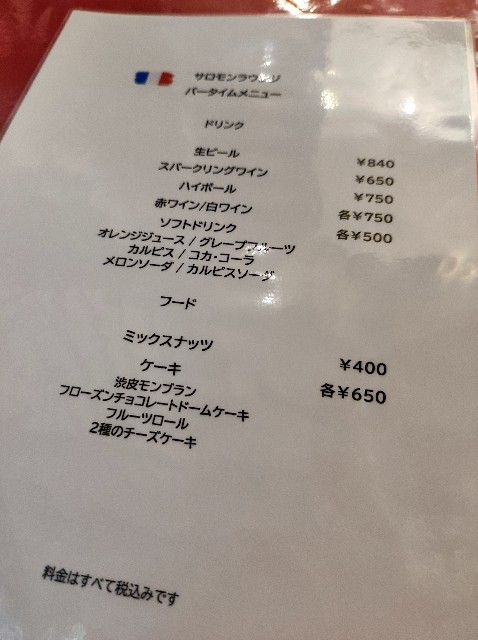 サロモンラウンジ
バータイムメニュー
ドリンク
生ビール ¥840
スパークリングワイン ¥650
ハイボール ¥750
赤ワイン/白ワイン 各¥750
ソフトドリンク 各¥500
オレンジジュース / グレープフルーツ
カルピス / コカ・コーラ
メロンソーダ / カルピスソーダ
フード
ミックスナッツ ¥400
ケーキ 各¥650
渋皮モンブラン
フローズンチョコレートドームケーキ
フルーツロール
2種のチーズケーキ
料金はすべて税込みです